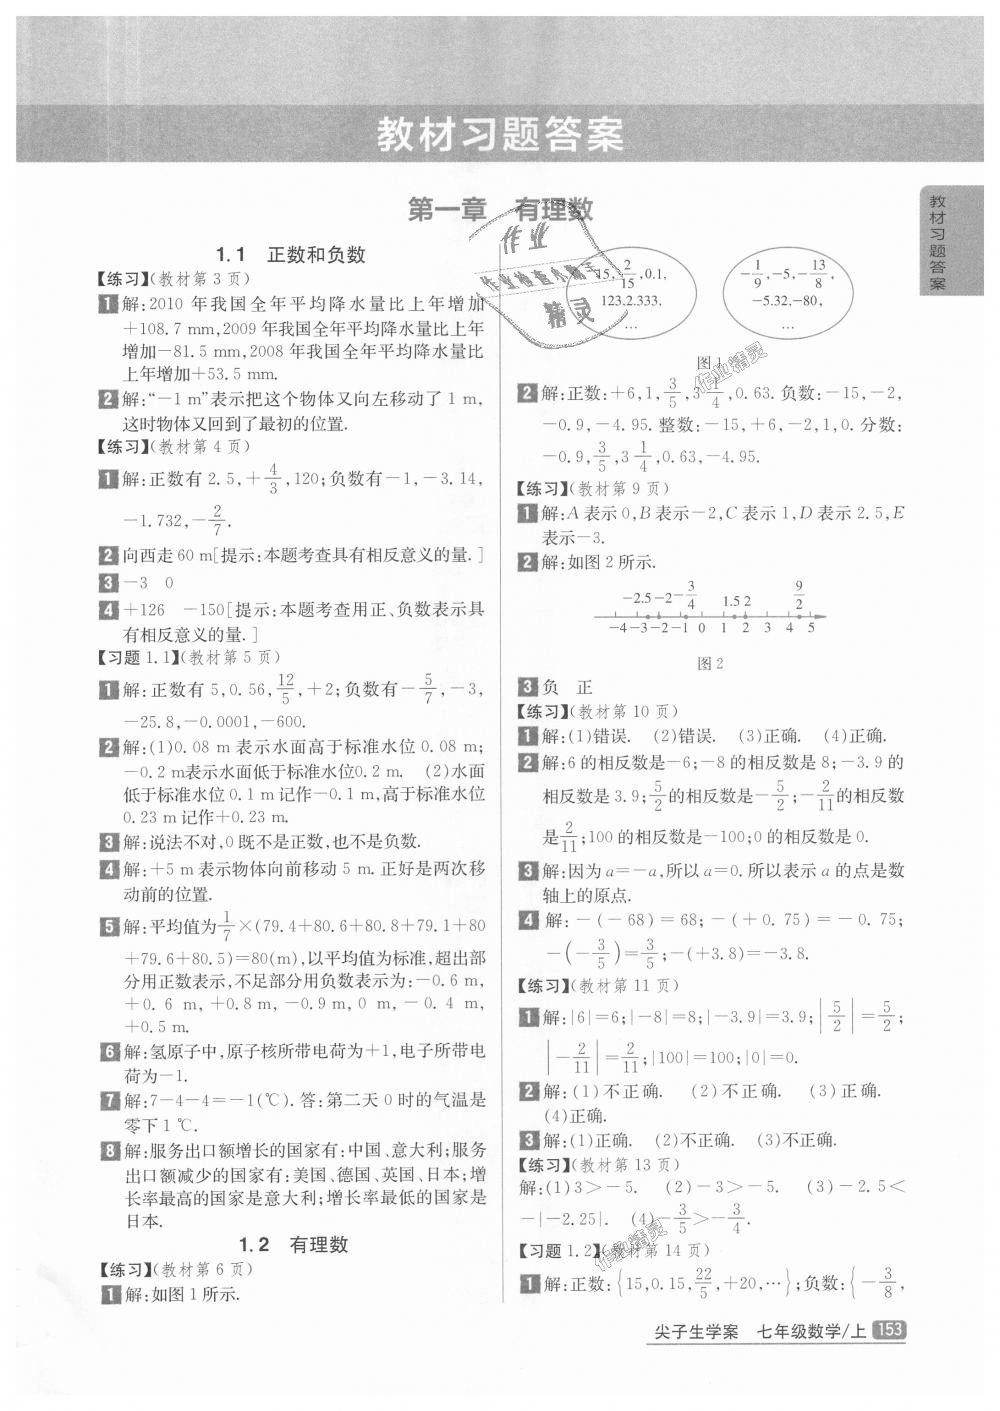 教材习题答案
教材习题答案
第一章 有理数
1.1 正数和负数
【练习】(教材第 3 页)
1 解:2010 年我国全年平均降水量比上年增加
+108.7 mm,2009 年我国全年平均降水量比上年
增加-81.5 mm,2008 年我国全年平均降水量比
上年增加+53.5 mm.
2 解:“-1 m”表示把这个物体又向左移动了 1 m,
这时物体又回到了最初的位置.
【练习】(教材第 4 页)
1 解:正数有 2.5,+4/3,120;负数有-1,-3.14,
-1.732,-2/7.
2 向西走 60 m[提示:本题考查具有相反意义的量.]
3 -3 0
4 +126 -150[提示:本题考查用正、负数表示具
有相反意义的量.]
【习题 1.1】(教材第 5 页)
1 解:正数有 5,0.56,12/5,+2;负数有-5/7,-3,
-25.8,-0.0001,-600.
2 解:(1)0.08 m 表示水面高于标准水位 0.08 m;
-0.2 m表示水面低于标准水位0.2 m. (2)水面
低于标准水位 0.1 m 记作-0.1 m,高于标准水位
0.23 m 记作+0.23 m.
3 解:说法不对,0 既不是正数,也不是负数.
4 解:+5 m 表示物体向前移动 5 m.正好是两次移
动前的位置.
5 解:平均值为1/7×(79.4+80.6+80.8+79.1+80
+79.6+80.5)=80(m),以平均值为标准,超出部
分用正数表示,不足部分用负数表示为:-0.6 m,
+0.6 m,+0.8 m,-0.9 m,0 m,-0.4 m,
+0.5 m.
6 解:氢原子中,原子核所带电荷为+1,电子所带电
荷为-1.
7 解:7-4-4=-1(℃).答:第二天 0 时的气温是
零下 1 ℃.
8 解:服务出口额增长的国家有:中国、意大利;服务
出口额减少的国家有:美国、德国、英国、日本;增
长率最高的国家是意大利;增长率最低的国家是
日本.
1.2 有理数
【练习】(教材第 6 页)
1 解:如图 1 所示.
作业
作业检查小帮手
精灵
15,2/15,0.1,
123,2.333,
…
-1/9,-5,-13/8,
-5.32,-80,
…
图 1
作业精灵
2 解:正数:+6,1,3/5,3 1/4,0.63.负数:-15,-2,
-0.9,-4.95.整数:-15,+6,-2,1,0.分数:
-0.9,3/5,3 1/4,0.63,-4.95.
【练习】(教材第 9 页)
1 解:A 表示 0,B 表示-2,C 表示 1,D 表示 2.5,E
表示-3.
2 解:如图 2 所示.
-2.5 -2 -3/4 1.5 2 9/2
-4 -3 -2 -1 0 1 2 3 4 5
图 2
3 负 正
【练习】(教材第 10 页)
1 解:(1)错误. (2)错误. (3)正确. (4)正确.
2 解:6 的相反数是-6;-8 的相反数是 8;-3.9 的
相反数是 3.9;5/2的相反数是-5/2;-2/11的相反数
是2/11;100 的相反数是-100;0 的相反数是 0.
3 解:因为 a=-a,所以 a=0.所以表示 a 的点是数
轴上的原点.
4 解:-(-68)=68;-(+0.75)=-0.75;
-(-3/5)=3/5;-(+3.8)=-3.8.
【练习】(教材第 11 页)
1 解:|6|=6;|-8|=8;|-3.9|=3.9;|5/2|=5/2;
|-2/11|=2/11;|100|=100;|0|=0.
2 解:(1)不正确. (2)不正确. (3)正确.
(4)正确.
3 解:(1)正确. (2)不正确. (3)不正确.
【练习】(教材第 13 页)
解:(1)3>-5. (2)-3>-5. (3)-2.5<
-|-2.25|. (4)-3/5>-3/4.
作业精灵
【习题 1.2】(教材第 14 页)
1 解:正数:{15,0.15,22/5,+20,…};负数:{-3/8,
尖子生学案 七年级数学/上 153